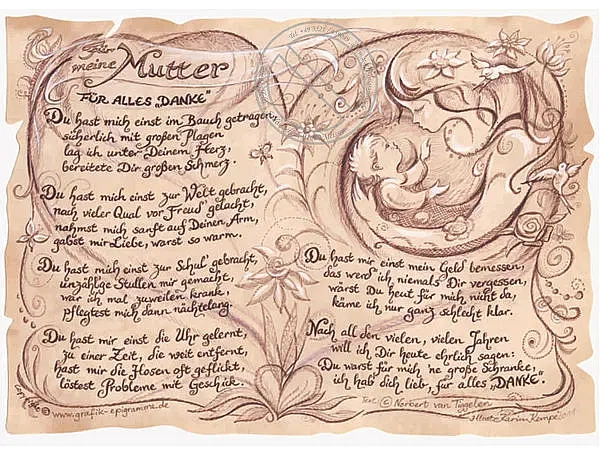 Für
meine Mutter
FÜR ALLES „DANKE"
Du hast mich einst im Bauch getragen,
sicherlich mit großen Plagen
lag ich unter Deinem Herz,
bereitete Dir großen Schmerz.
Du hast mich einst zur Welt gebracht,
nach vieler Qual vor Freud' gelacht,
nahmst mich sanft auf Deinen Arm,
gabst mir Liebe, warst so warm.
Du hast mich einst zur Schul' gebracht,
unzählge Stullen mir gemacht,
war ich mal zuweilen krank,
pflegtest mich dann nächtelang.
Du hast mir einst die Uhr gelernt,
zu einer Zeit, die weit entfernt,
hast mir die Hosen oft geflickt,
löstest Probleme mit Geschick.
Du hast mir einst mein Geld bemessen,
das werd' ich niemals Dir vergessen,
wärst Du heut' für mich nicht da,
käme ich nur ganz schlecht klar.
Nach all den vielen, vielen Jahren
will ich Dir heute ehrlich sagen:
Du warst für mich 'ne große Schranke,
ich hab dich lieb, für alles „DANKE".
Text © Norbert van Tiggelen
Illustr. Karin Kempe
© www.grafik-epigramme.de